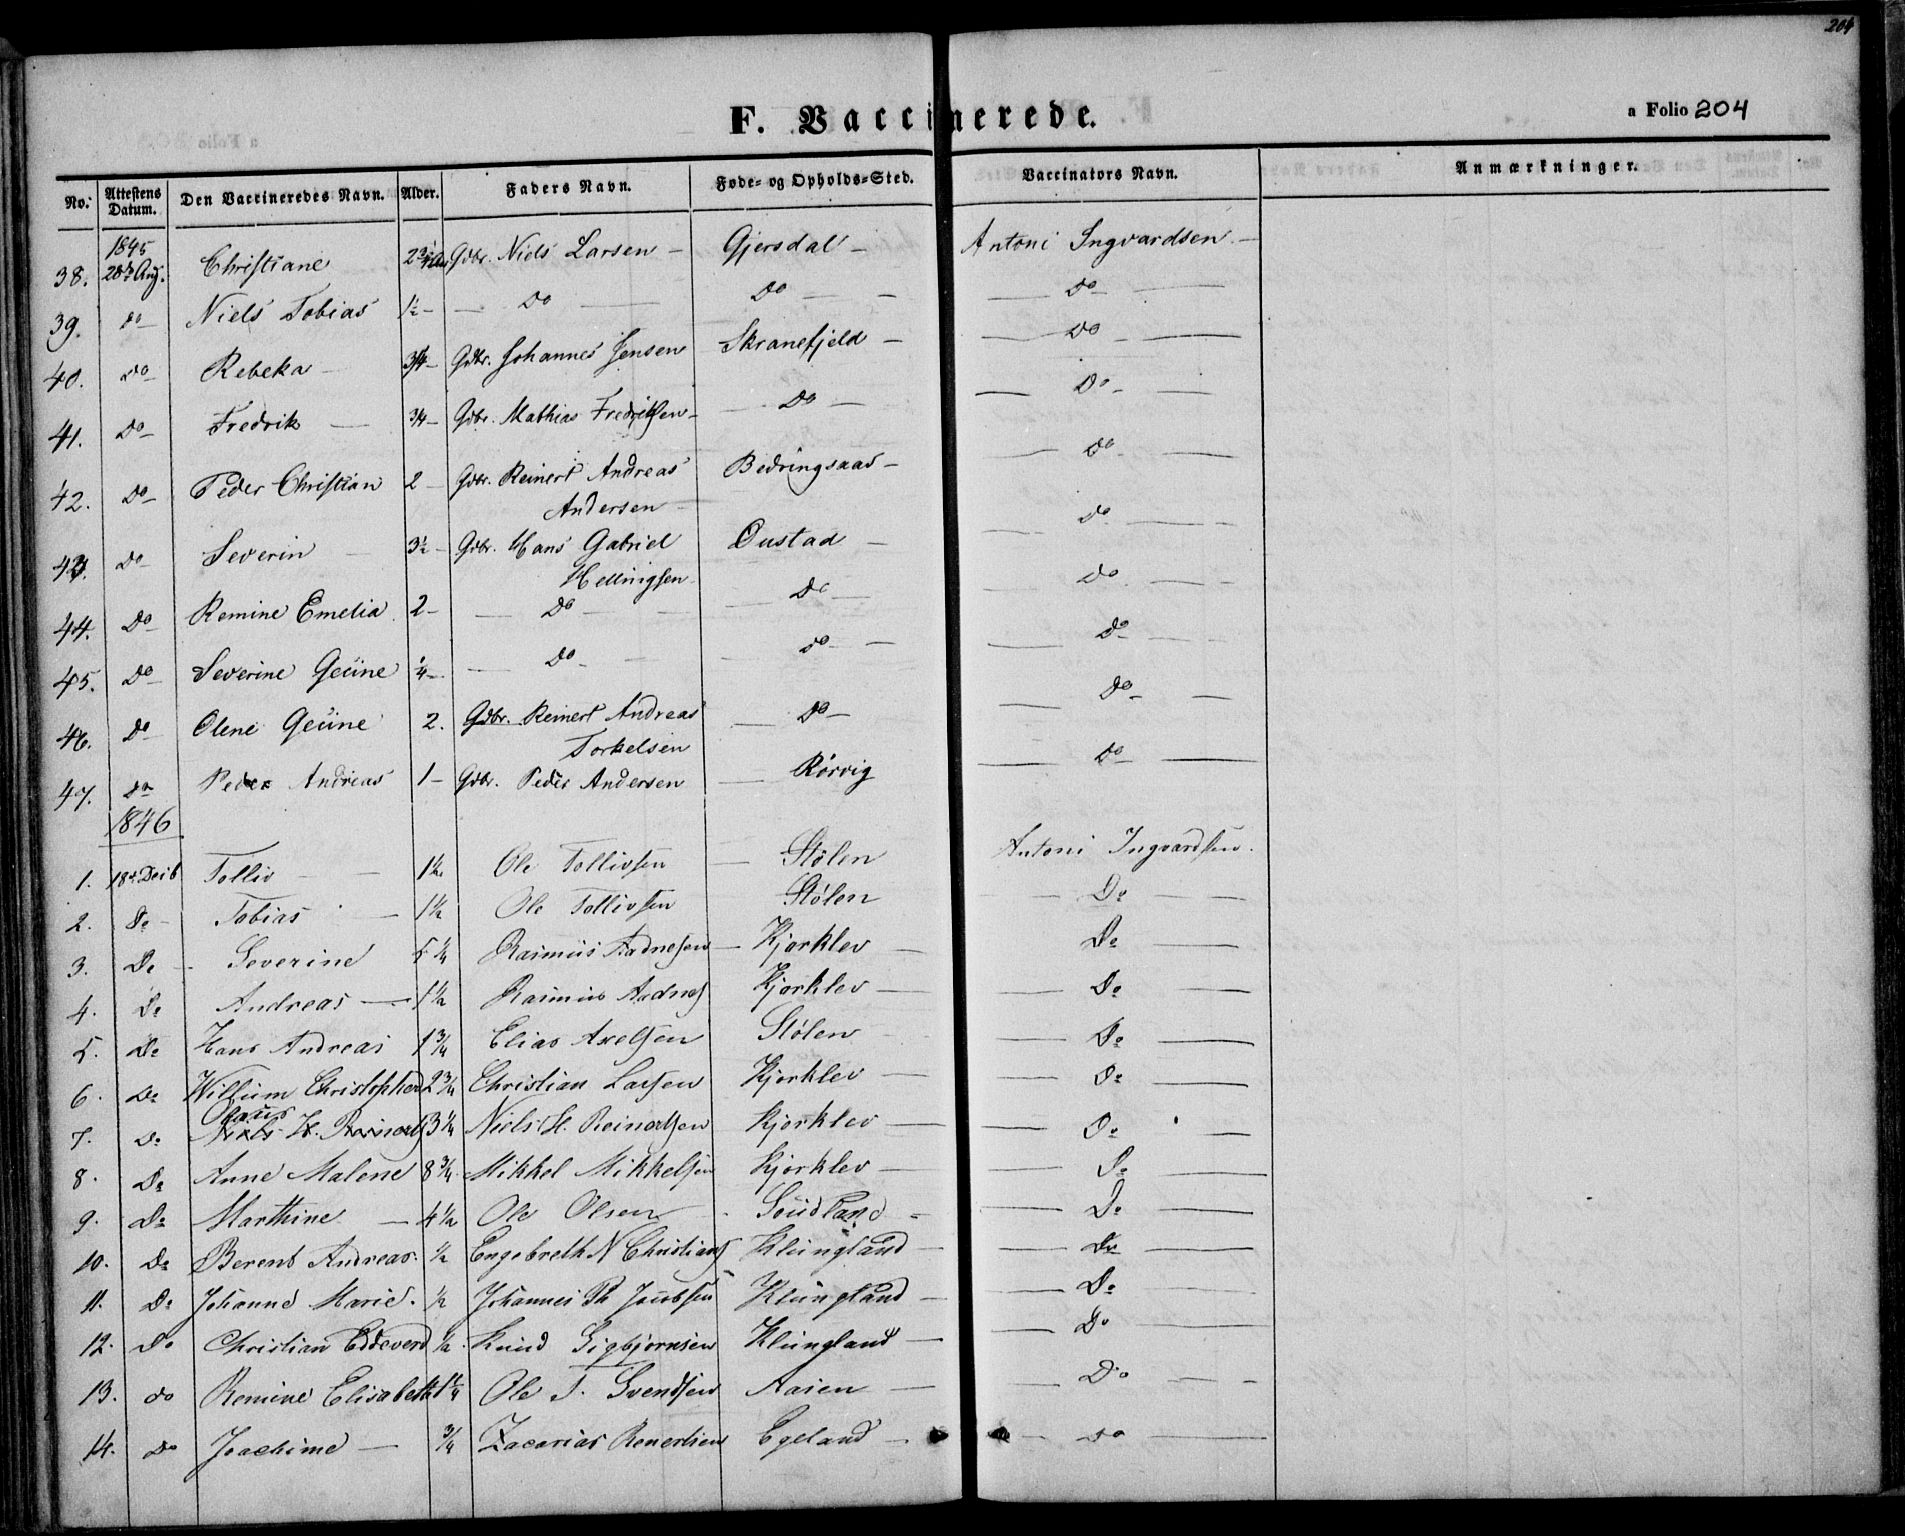 204
F. Vaccinerede.
a Folio 204
No. Attestens Datum. Den Vaccineredes Navn. Alder. Faders Navn. Føde- og Opholds-Sted. Vaccinators Navn. Anmærkninger.
1845
38. 28de Aug. Christiane Gdbr. Niels Larsen - Gjersdal - Antoni Ingvardsen -
39. do - Niels Tobias 1½ - Do - Do - Do -
40. Do - Rebeka - 3/4 - Gdbr. Johannes Jensen Skranefjeld - Do -
41. Do - Fredrik - 3/4 - Gdbr. Mathias Fredriksen - Do - Do -
42. Do - Peder Christian 2 - Gdbr. Reinert Andreas Bedringsaas - Do -
Andersen -
43. Do - Severin - 3½ - Gdbr. Hans Gabriel Oustad - Do -
Hellingsen
44. Do - Remine Emelia 2 - Do - Do - Do -
45. Do - Severine Geüne ¼ - Do - Do - Do -
46. Do - Olene Geüne 2. Gdbr. Reinert Andreas Do - Do -
Torkelsen
47. Do Peder Andreas 1 - Gdbr. Peder Andersen Rørvig Do -
1846
1. 18de Decb Tolliv - 1½ Ole Tollivsen Stølen Antoni Ingvardsen.
2. Do - Tobias - 1½ Ole Tollivsen Stølen Do -
3. Do - Severine 5¼ Rasmus Aadnesen Kjorklev - Do -
4. Do Andreas - 1½ Rasmus Aadnes Kjorklev - Do -
5. Do Hans Andreas 1¾ Elias Axelsen Stølen - Do -
6. Do Willum Christopher 2¾ Christian Larsen Kjorklev - Do -
Olaus
7. Do Niels H. Reinerts 3¼ Niels H. Reinertsen Kjorklev - Do -
8. Do Anne Malene 8¾ Mikkel Mikkelsen Kjorklev - Do -
9. Do Marthine - 4½ Ole Olsen - Soüdland - Do -
10. Do Berent Andreas. ½ Engebreth N Christians Klüngland - Do -
11. Do Johanne Marie. ½ Johannes Th Jacobsen Klüngland - Do -
12. Do Christian Eddeverd ½ Knud Sigbjørnsen Klüngland - Do -
13. do Remine Elisabeth 1¼ Ole T. Svendsen Aasen - Do -
14. Do Joachime - ¾ Zacarias Renertsen Egeland - Do -